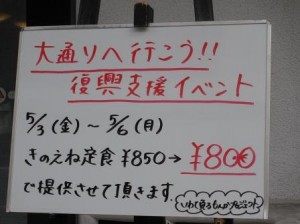 大通りへ行こう!!
復興支援イベント
5/3(金)～5/6(月)
きのえね定食¥850→¥800
で提供させて頂きます。